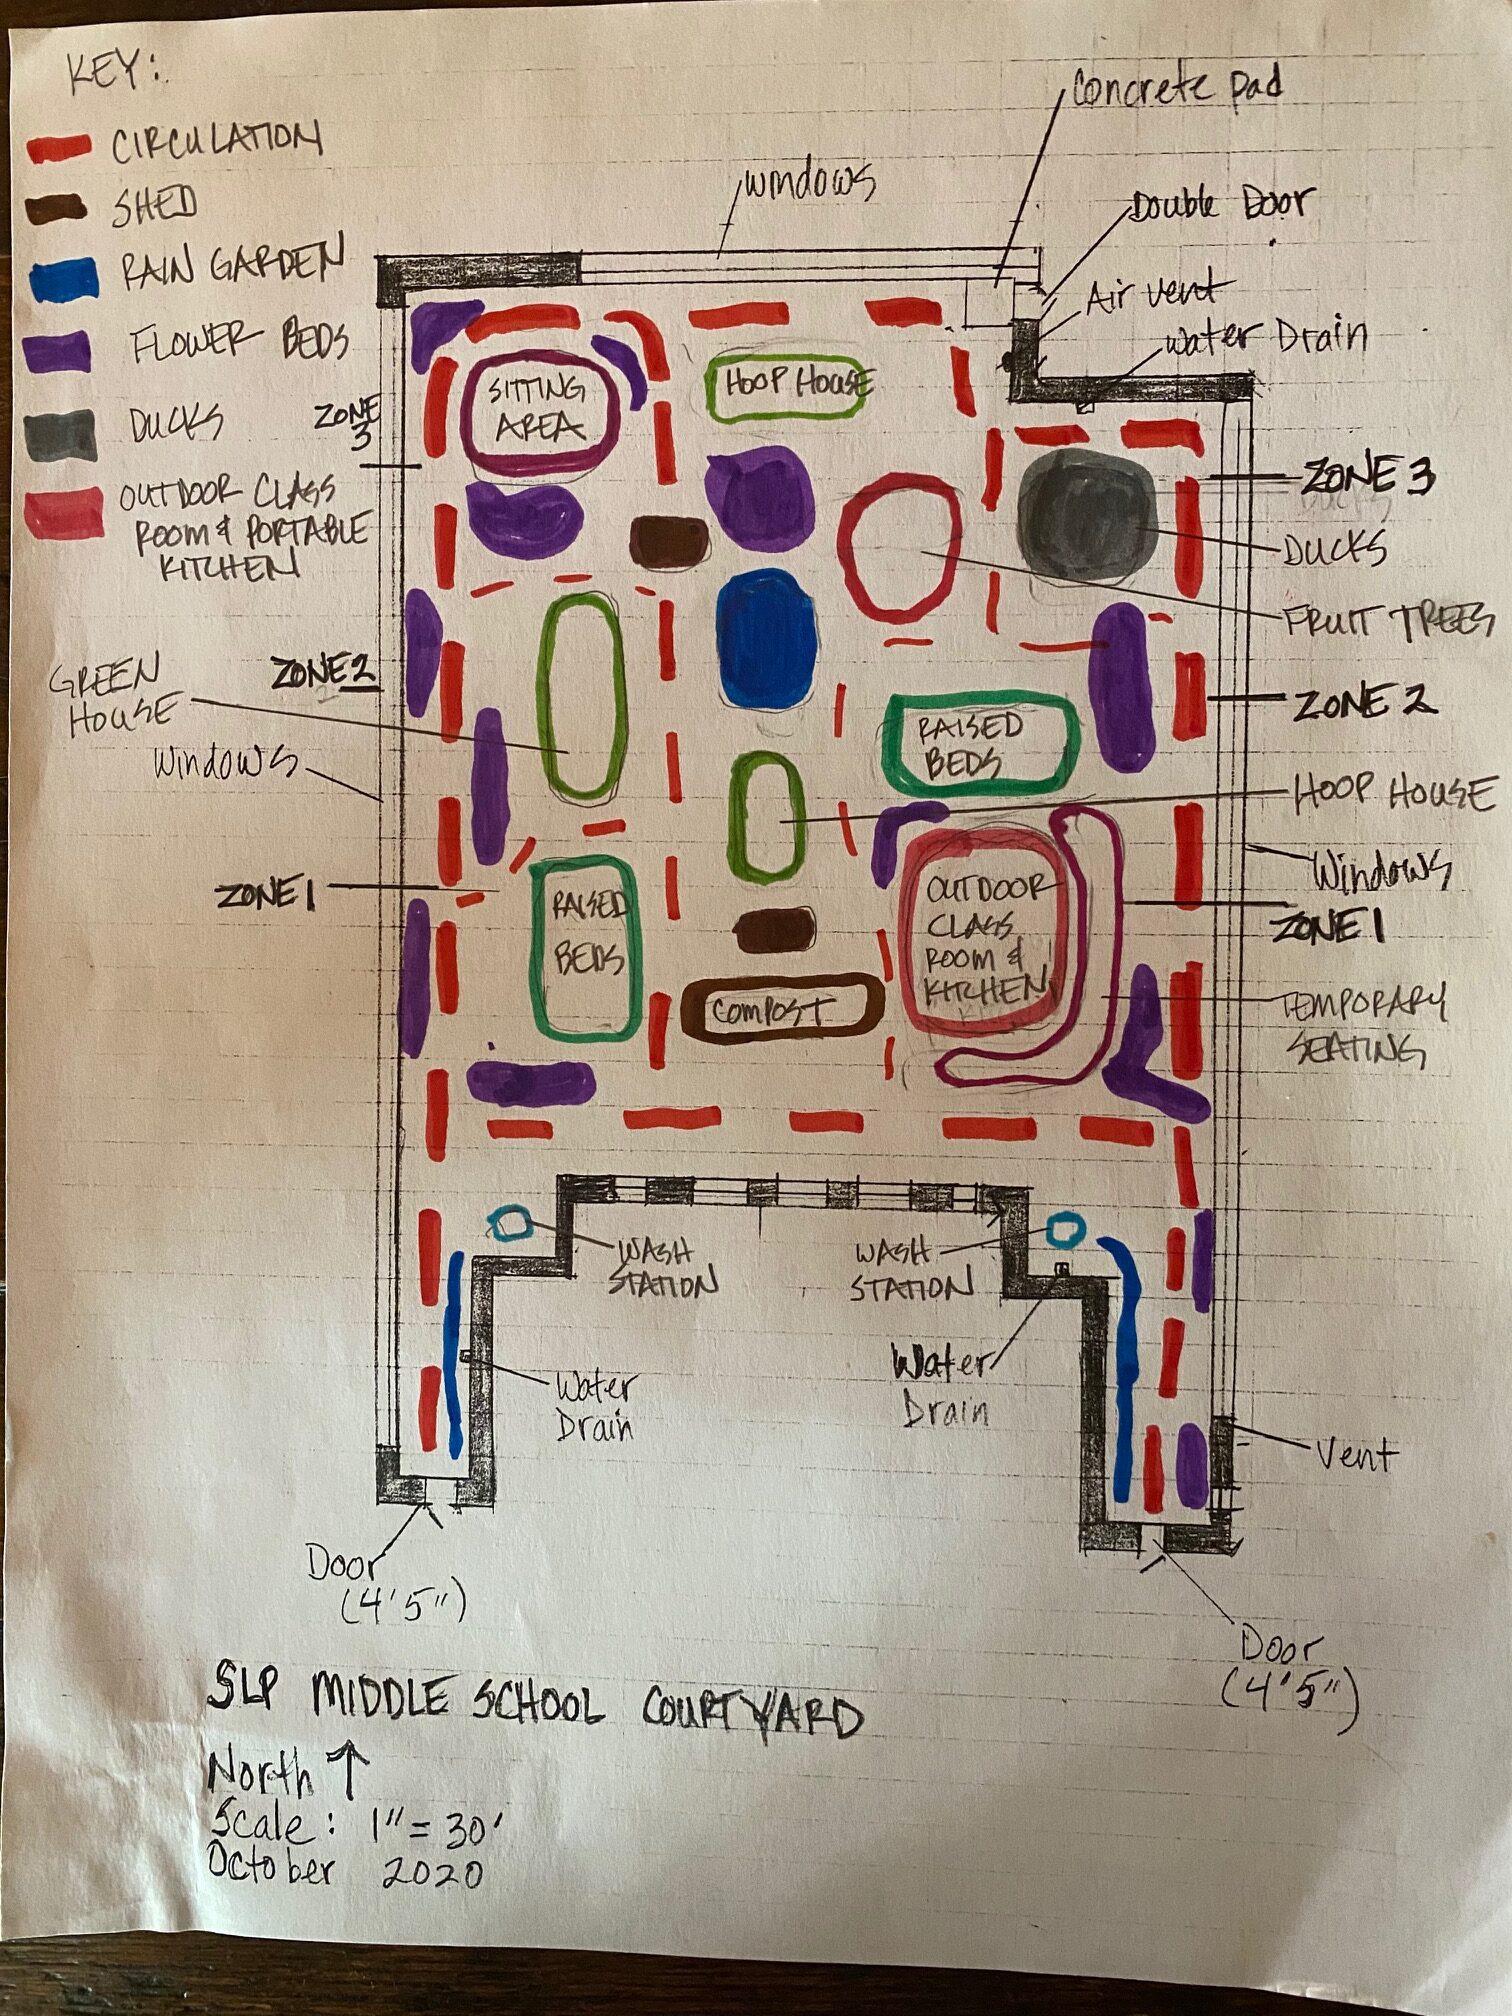 KEY:
CIRCULATION
SHED
RAIN GARDEN
FLOWER BEDS
DUCKS
OUTDOOR CLASS
ROOM & PORTABLE
KITCHEN
Concrete pad
windows
Double Door
Air vent
Water Drain
ZONE
3
SITTING
AREA
HOOP HOUSE
ZONE 3
DUCKS
FRUIT TREES
ZONE 2
GREEN
HOUSE
Windows
RAISED
BEDS
ZONE 2
HOOP HOUSE
Windows
ZONE 1
RAISED
BEDS
COMPOST
OUTDOOR
CLASS
ROOM &
KITCHEN
ZONE 1
TEMPORARY
SEATING
WASH
STATION
WASH
STATION
Water
Drain
Water
Drain
Vent
Door
(4'5")
Door
(4'5")
SLP MIDDLE SCHOOL COURTYARD
North ↑
Scale: 1" = 30'
October 2020